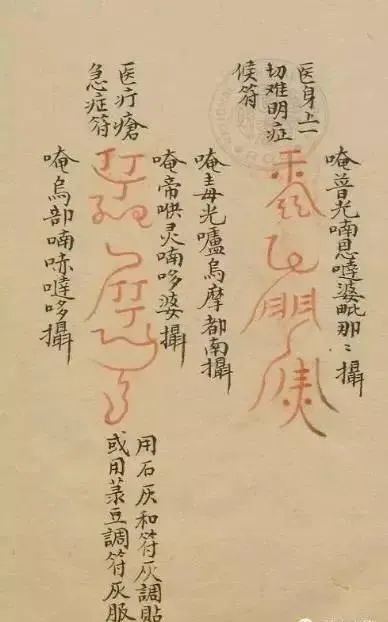 医身上一
切难明症
候符
唵普光喃恩噠婆毗那〻攝
唵毒光嚧烏摩都南攝
医疔瘡
急症符
唵帝哄灵喃哆婆攝
唵烏部喃哧噠哆攝
用石灰和符灰調貼
或用菉豆調符灰服